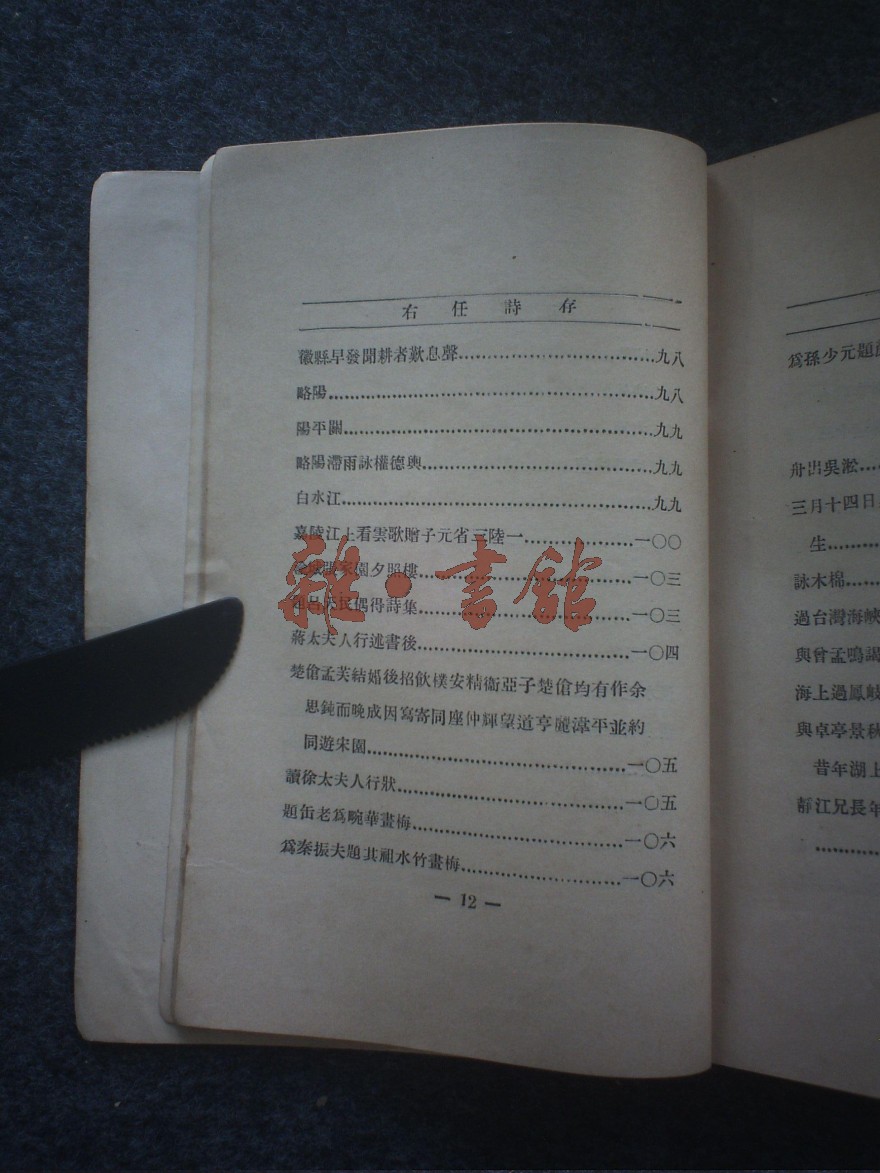 右任詩存
徽縣早發聞耕者歎息聲……九八
略陽……九八
陽平關……九九
略陽滯雨詠權德輿……九九
白水江……九九
嘉陵江上看雲歌贈子元省三陸一……一〇〇
園夕照樓……一〇三
民偶得詩集……一〇三
蔣太夫人行述書後……一〇四
楚傖孟芙結婚後招飲樸安精衞亞子楚傖均有作余
思鈍而晚成因寫寄同座仲輝望道亨麗漳平並約
同遊宋園……一〇五
讀徐太夫人行狀……一〇五
題缶老爲畹華畫梅……一〇六
爲秦振夫題其祖水竹畫梅……一〇六
— 12 —
爲孫少元題
舟出吳淞……
三月十四日
生……
詠木棉……
過台灣海峽
與曾孟鳴謁
海上過鳳
與卓亭景秋
昔年湖上
靜江兄長年
……
雜·書館